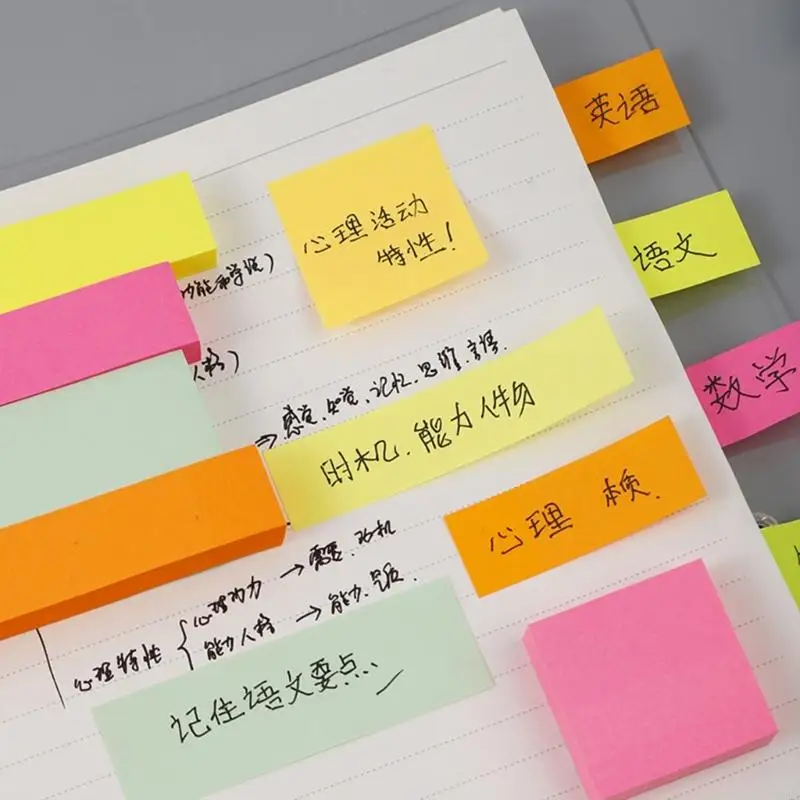 英语
心理活动
特性!
语文
功能和学说)
人格)
数学
⇒感觉、知觉、记忆、思维、言语.
时机、能力人物
心理 本质.
→需要、动机
心理动力
心理特性 {
能力人格 → 能力、气质.
记住语文要点.